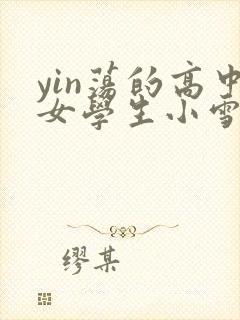 yin蕩的高中
女學生小雪
繆某